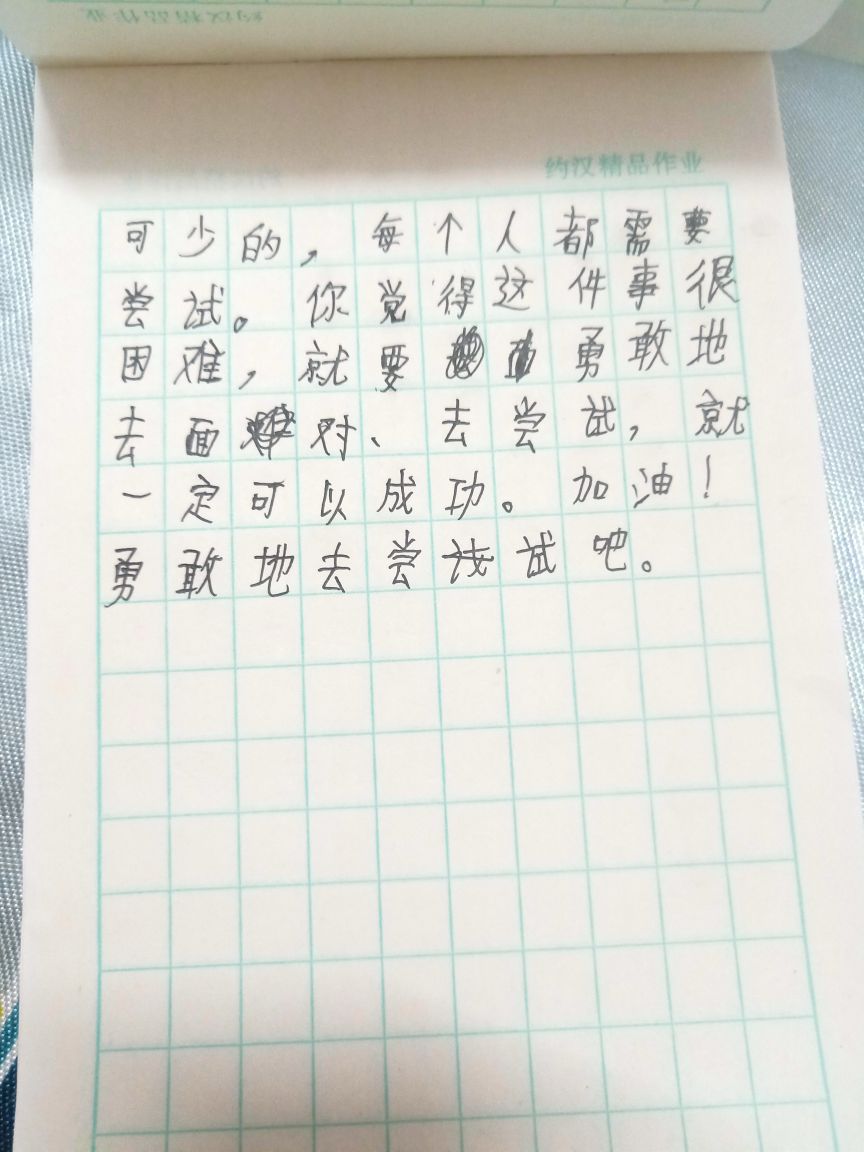 约汉精品作业
可少的，每个人都需要
尝试。你觉得这件事很
困难，就要勇敢地
去面对、去尝试，就
一定可以成功。加油！
勇敢地去尝试吧。